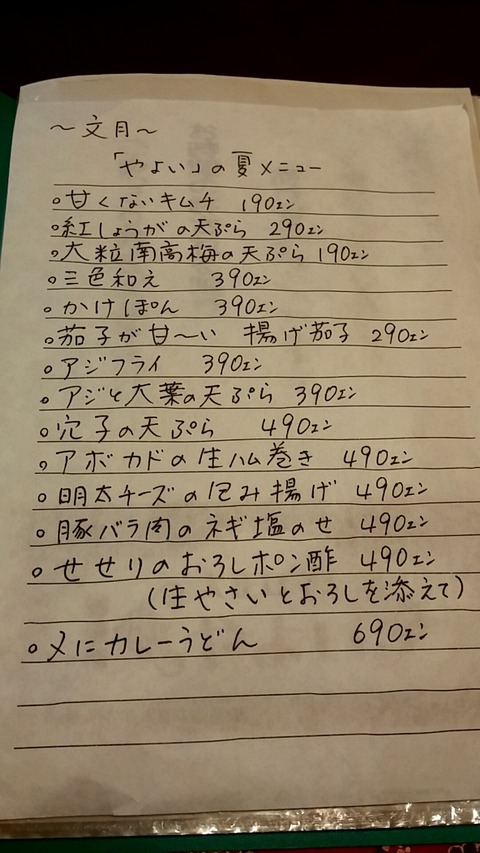 ～文月～
「やよい」の夏メニュー
○甘くないキムチ 190エン
○紅しょうがの天ぷら 290エン
○大粒南高梅の天ぷら 190エン
○三色和え 390エン
○かけぽん 390エン
○茄子が甘〜い 揚げ茄子 290エン
○アジフライ 390エン
○アジと大葉の天ぷら 390エン
○穴子の天ぷら 490エン
○アボカドの生ハム巻き 490エン
○明太チーズの包み揚げ 490エン
○豚バラ肉のネギ塩のせ 490エン
○せせりのおろしポン酢 490エン
(生やさいとおろしを添えて)
○〆にカレーうどん 690エン